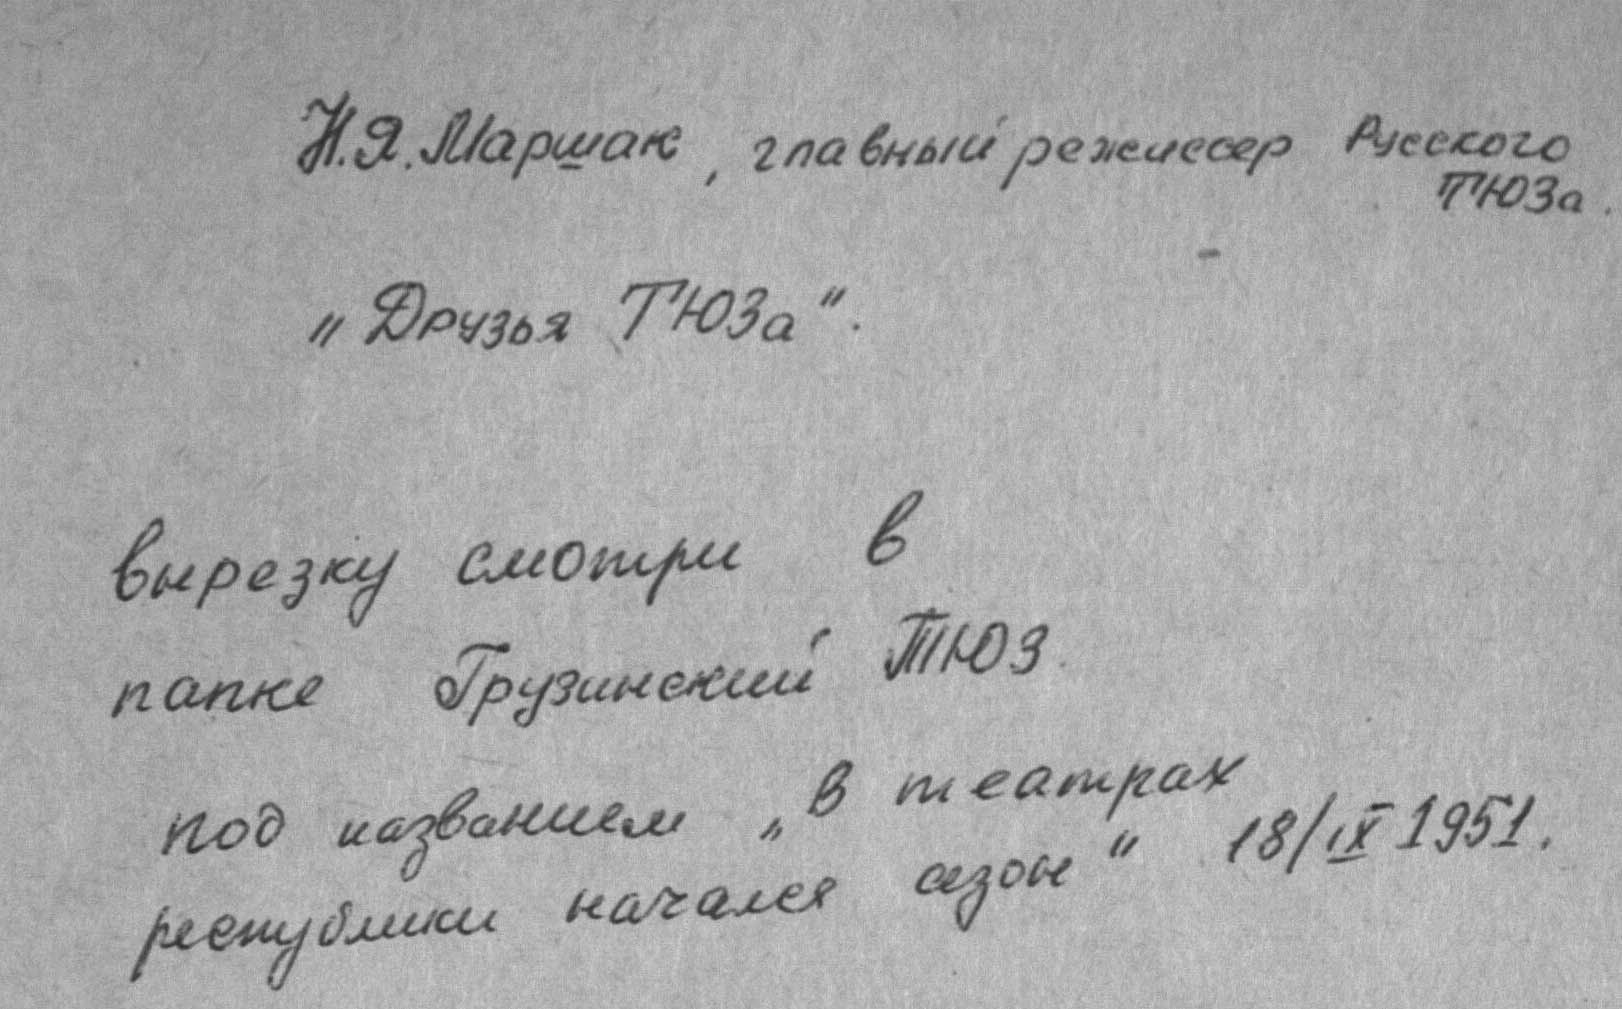 Н.Я. Маршак, главный режиссер Русского
ТЮЗа.
„Друзья ТЮЗа".
вырезку смотри в
папке Грузинский ТЮЗ
под названием „В театрах
республики начался сезон" 18/IX 1951.